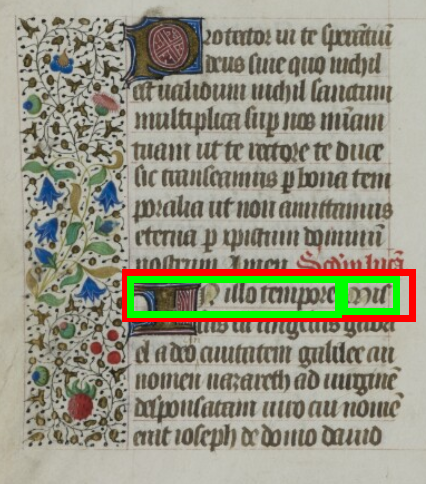 Protector in te sperātiū
deus sine quo nichil
est ualidum nichil sanctum
multiplica sup nos mīam
tuam ut te rectore te duce
sic transeamus p bona tem
poralia ut non amittamus
eterna p xpistum dominū
nostrum Amen Scdm lucā
In illo tempore Mis
sus est angelus gabri
el a deo ciuitatem galilee cui
nomen nazareth ad uirginē
desponsatam uiro cui nomē
erat ioseph de domo dauid